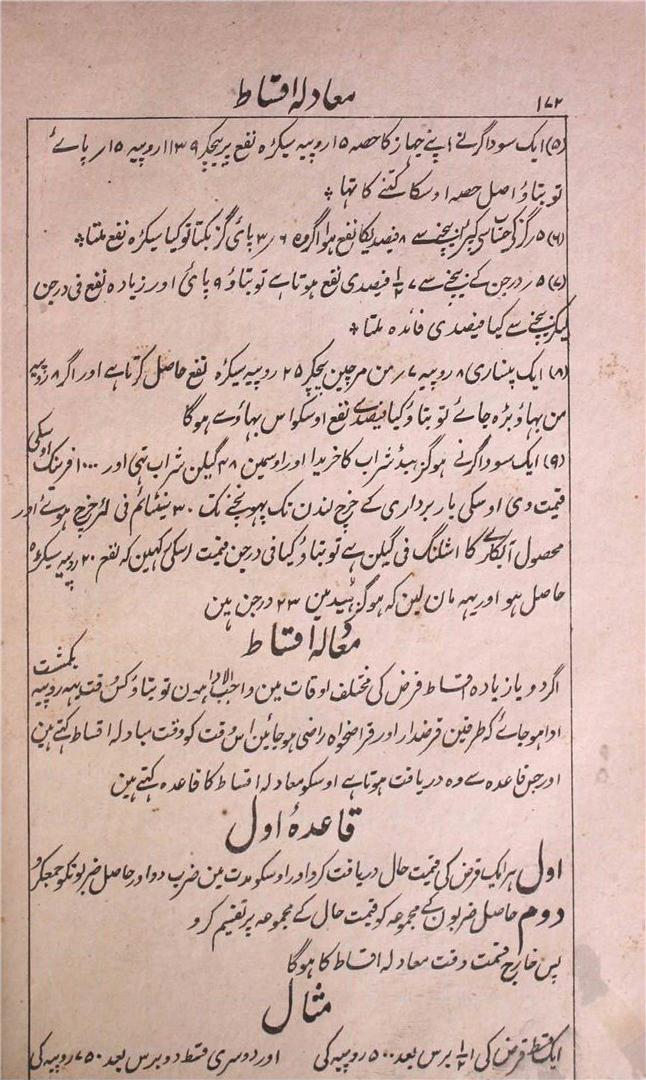 ۱۷۲
معادلہ اقساط
(۵) ایک سوداگر نے اپنے جہاز کا حصہ ۱۵ روپیہ سیکڑہ نفع پر بیچکر ۱۱۳۹ روپیہ ۱۵ر پائے
تو بتاؤ اصل حصہ اوسکا کتنے کا تہا ؞
(۶) ۵ر گز کے حساب سے کپڑا بیچنے سے ۸ فیصدیکا نفع ہوا اگر وہ ۶ر۳ پائی گز بکتا تو کیا سیکڑہ نفع ملتا ؞
(۷) ۵ر درجن کے بیچنے سے ۷ ۱/۲ فیصدی نفع ہوتا ہے تو بتاؤ ۹ پائی اور زیادہ نفع فی درجن
لیکر بیچنے سے کیا فیصدی فائدہ ملتا ؞
(۸) ایک پنساری ۸ روپیہ ۷ر من مرچین بیچکر ۲۵ روپیہ سیکڑہ نفع حاصل کرتا ہے اور اگر ۸ روپیہ
من بہاؤ بڑہ جائے تو بتاؤ کیا فیصدی نفع اوسکو اس بہاؤ سے ہوگا
(۹) ایک سوداگر نے ہوگزہیڈ شراب کا خریدا اور اوسمین ۴۸ گیلن شراب تہی اور ۱۰۰۰ افرنیک اوسکی
قیمت دی اوسکی باربرداری کے خرچ لندن تک پہونچنے تک ۳۰ سینٹائم فی لٹر خرچ ہوئے اور
محصول آبکاری کا اشلنگ فی گیلن ہے تو بتاؤ کیا فی درجن قیمت اسکی رکہین کہ نفع ۲۰ روپیہ سیکڑہ
حاصل ہو اور یہہ مان لین کہ ہوگزہیڈ مین ۲۳ درجن ہین
معادلہ اقساط
اگر دو یا زیادہ اقساط قرض کی مختلف اوقات مین واجب الادا ہون تو بتاؤ کس وقت یہہ روپیہ یکمشت
ادا ہو جائے کہ طرفین قرضدار اور قرضخواہ راضی ہو جائین اس وقت کو وقت مبادلہ اقساط کہتے ہین
اور جس قاعدہ سے وہ دریافت ہوتا ہے اوسکو معادلہ اقساط کا قاعدہ کہتے ہین
قاعدۂ اول
اول ہر ایک قرض کی قیمت حال دریافت کرو اور اوسکو مدت مین ضرب دو اور حاصل ضربونکو جمع کرو
دوم حاصل ضربون کے مجموعہ کو قیمت حال کے مجموعہ پر تقسیم کرو
پس خارج قسمت وقت معادلہ اقساط کا ہوگا
مثال
ایک قسط قرض کی ۱ ۱/۲ برس بعد ۵۰۰ روپیہ کی اور دوسری قسط دو برس بعد ۷۵۰ روپیہ کی